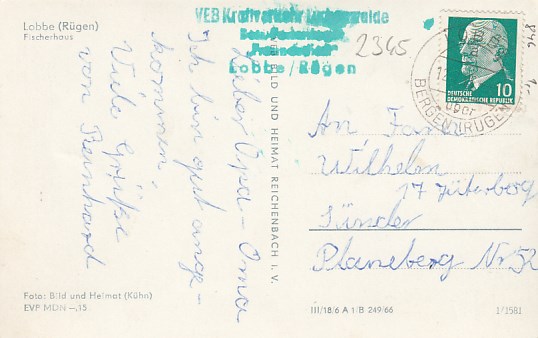 Lobbe (Rügen)
Fischerhaus
VEB Kraftverkehr
Lobbe/Rügen
2345
846
10
DEUTSCHE
DEMOKRATISCHE REPUBLIK
BERGEN (RÜGEN)
Lieber Opa - Oma
Ich bin gut ange-
kommen.
Viele Grüße
von Reinhard
BILD UND HEIMAT REICHENBACH I. V.
An Fam.
Wilhelm
17 Jüterbog
Planeberg Nr 52
Foto: Bild und Heimat (Kühn)
EVP MDN —,15
III/18/6 A 1/B 249/66
1/1581